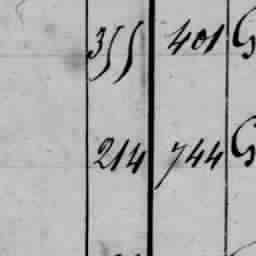 355 401 G
214 744 G